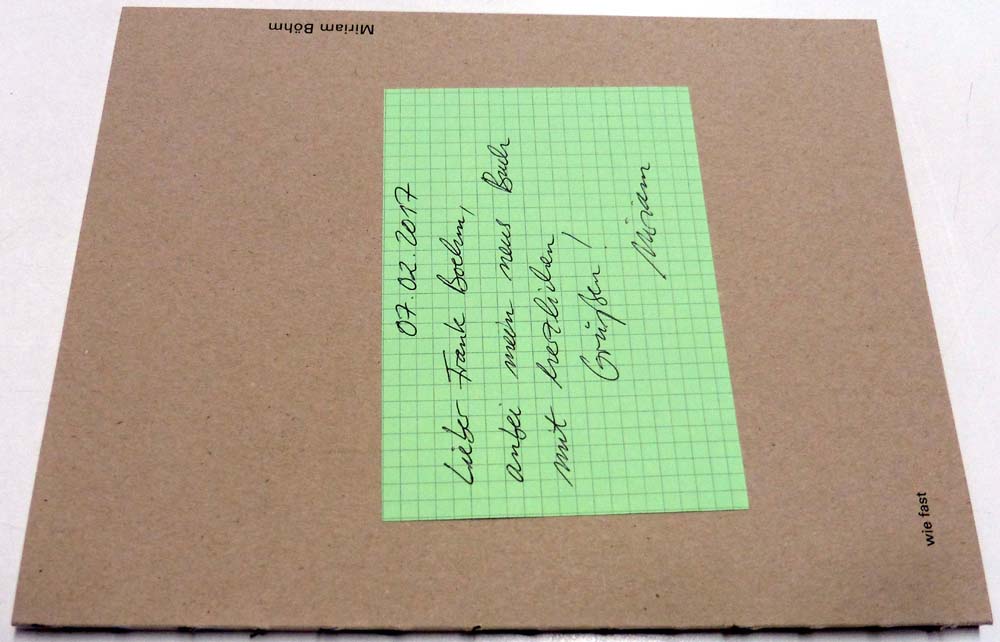 Miriam Böhm
07.02.2017
Lieber Frank Boehm,
anbei mein neus Buch
mit herzlichen
Grüßen!
Miriam
wie fast